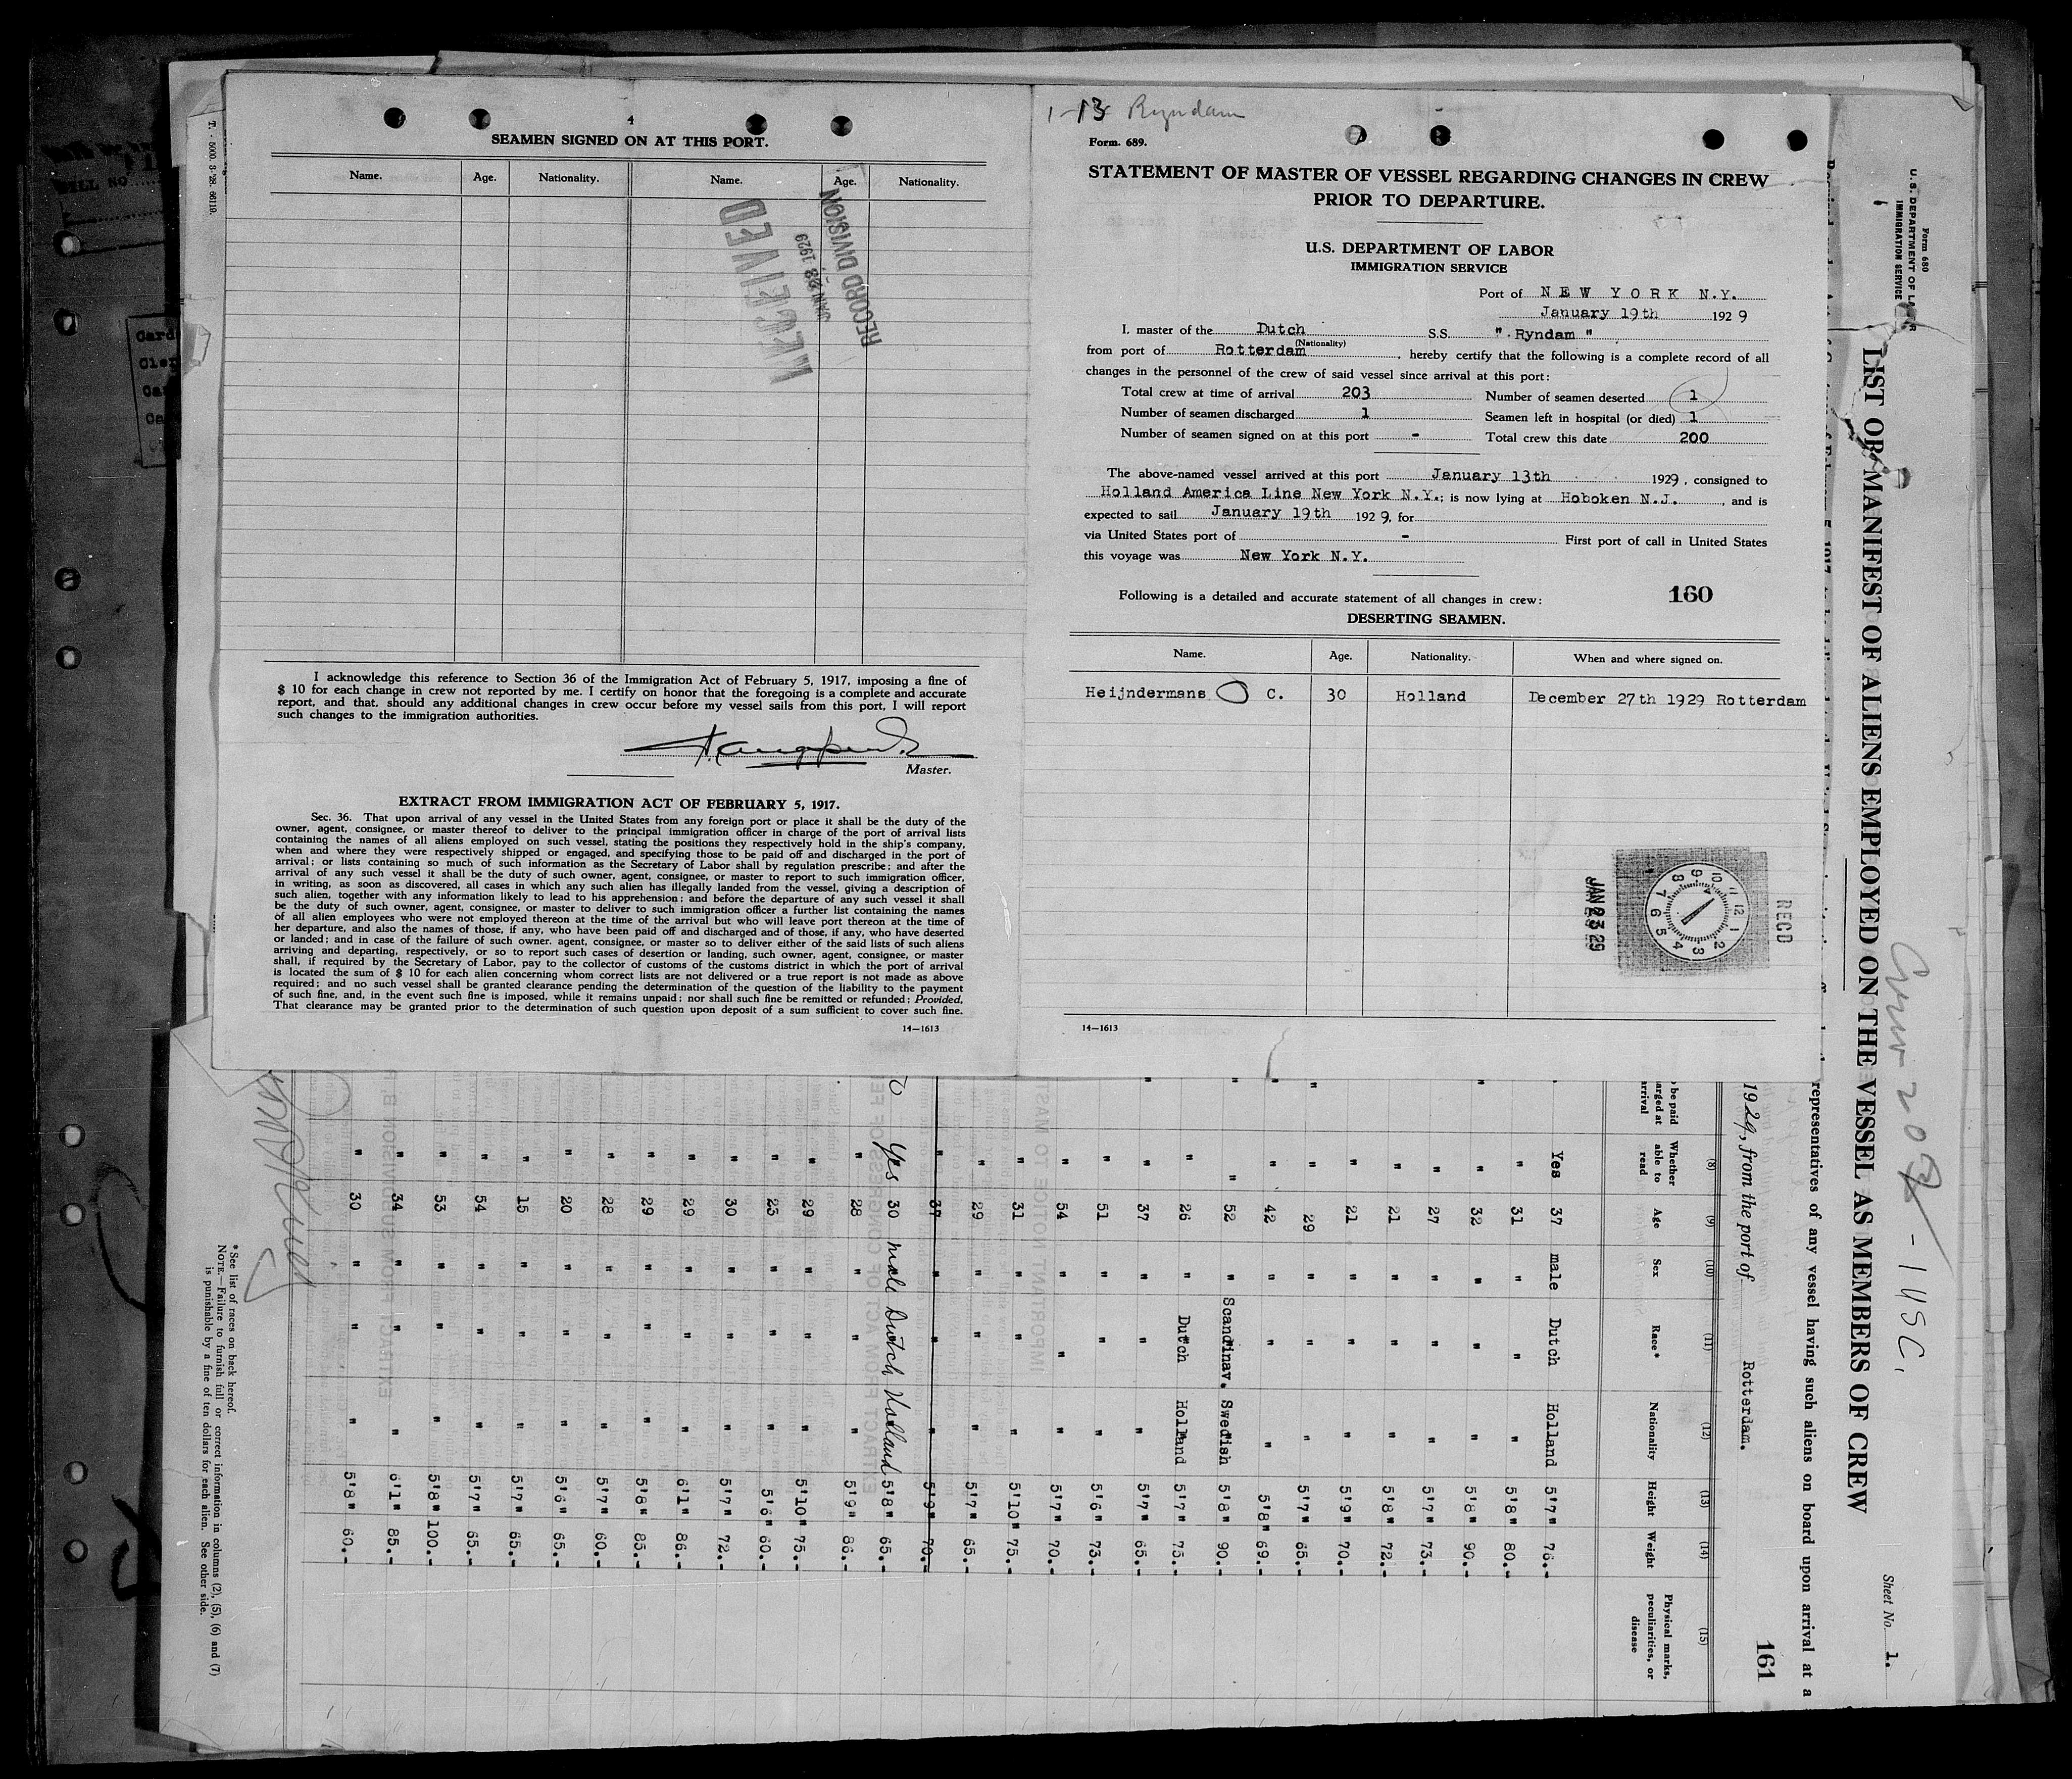 4
SEAMEN SIGNED ON AT THIS PORT.
Name. Age. Nationality. Name. Age. Nationality.
RECEIVED
JAN 22 1929
RECORD DIVISION
I acknowledge this reference to Section 36 of the Immigration Act of February 5, 1917, imposing a fine of
$ 10 for each change in crew not reported by me. I certify on honor that the foregoing is a complete and accurate
report, and that, should any additional changes in crew occur before my vessel sails from this port, I will report
such changes to the immigration authorities.
Master.
EXTRACT FROM IMMIGRATION ACT OF FEBRUARY 5, 1917.
Sec. 36. That upon arrival of any vessel in the United States from any foreign port or place it shall be the duty of the
owner, agent, consignee, or master thereof to deliver to the principal immigration officer in charge of the port of arrival lists
containing the names of all aliens employed on such vessel, stating the positions they respectively hold in the ship's company,
when and where they were respectively shipped or engaged, and specifying those to be paid off and discharged in the port of
arrival; or lists containing so much of such information as the Secretary of Labor shall by regulation prescribe; and after the
arrival of any such vessel it shall be the duty of such owner, agent, consignee, or master to report to such immigration officer,
in writing, as soon as discovered, all cases in which any such alien has illegally landed from the vessel, giving a description of
such alien, together with any information likely to lead to his apprehension; and before the departure of any such vessel it shall
be the duty of such owner, agent, consignee, or master to deliver to such immigration officer a further list containing the names
of all alien employees who were not employed thereon at the time of the arrival but who will leave port thereon at the time of
her departure, and also the names of those, if any, who have been paid off and discharged and of those, if any, who have deserted
or landed; and in case of the failure of such owner. agent, consignee, or master so to deliver either of the said lists of such aliens
arriving and departing, respectively, or so to report such cases of desertion or landing, such owner, agent, consignee, or master
shall, if required by the Secretary of Labor, pay to the collector of customs of the customs district in which the port of arrival
is located the sum of $ 10 for each alien concerning whom correct lists are not delivered or a true report is not made as above
required; and no such vessel shall be granted clearance pending the determination of the question of the liability to the payment
of such fine, and, in the event such fine is imposed, while it remains unpaid; nor shall such fine be remitted or refunded: Provided,
That clearance may be granted prior to the determination of such question upon deposit of a sum sufficient to cover such fine.
14—1613
T. - 5000. 3-'28. 66119.
1-13 Ryndam
Form. 689.
STATEMENT OF MASTER OF VESSEL REGARDING CHANGES IN CREW
PRIOR TO DEPARTURE.
U.S. DEPARTMENT OF LABOR
IMMIGRATION SERVICE
Port of NEW YORK N.Y.
January 19th 1929
I. master of the Dutch S.S. " Ryndam "
(Nationality)
from port of Rotterdam, hereby certify that the following is a complete record of all
changes in the personnel of the crew of said vessel since arrival at this port:
Total crew at time of arrival 203 Number of seamen deserted 1
Number of seamen discharged 1 Seamen left in hospital (or died) 1
Number of seamen signed on at this port - Total crew this date 200
The above-named vessel arrived at this port January 13th 1929, consigned to
Holland America Line New York N.Y.; is now lying at Hoboken N.J., and is
expected to sail January 19th 1929, for
via United States port of - First port of call in United States
this voyage was New York N.Y.
160
Following is a detailed and accurate statement of all changes in crew:
DESERTING SEAMEN.
Name. Age. Nationality. When and where signed on.
Heijndermans C. 30 Holland December 27th 1929 Rotterdam
JAN 23 29
RECD
14—1613
Form 680
U.S. DEPARTMENT OF LABOR
IMMIGRATION SERVICE
LIST OR MANIFEST OF ALIENS EMPLOYED ON THE VESSEL AS MEMBERS OF CREW
Sheet No. 1.
representatives of any vessel having such aliens on board upon arrival at a
1929, from the port of Rotterdam.
161
(8) (9) (10) (11) (12) (13) (14) (15)
be paid
arged at
arrival
Whether able to read Age Sex Race* Nationality Height Weight Physical marks, peculiarities, or disease
Yes 37 male Dutch Holland 5'7" 76.-
" 31 " " " 5'8" 80.-
" 32 " " " 5'8" 90.-
" 27 " " " 5'7" 73.-
" 21 " " " 5'8" 72.-
" 21 " " " 5'9" 70.-
" 29 " " " 5'7" 65.-
" 42 " " " 5'8" 69.-
" 52 " Scandinav. Swedish 5'8" 90.-
" 26 " Dutch Holland 5'7" 75.-
" 37 " " " 5'7" 65.-
" 51 " " " 5'6" 73.-
" 54 " " " 5'7" 70.-
" 31 " " " 5'10" 75.-
" 29 " " " 5'7" 65.-
" 37 " " " 5'9" 70.-
Yes 30 male Dutch Holland 5'8" 65.-
" 28 " " " 5'9" 86.-
" 29 " " " 5'10" 75.-
" 23 " " " 5'6" 60.-
" 30 " " " 5'7" 72.-
" 29 " " " 6'1" 86.-
" 29 " " " 5'8" 85.-
" 28 " " " 5'7" 60.-
" 20 " " " 5'6" 65.-
" 15 " " " 5'7" 65.-
" 54 " " " 5'7" 65.-
" 53 " " " 5'8" 100.-
" 34 " " " 6'1" 85.-
" 30 " " " 5'8" 60.-
*See list of races on back hereof.
NOTE.—Failure to furnish full or correct information in columns (2), (5), (6) and (7)
is punishable by a fine of ten dollars for each alien. See other side.